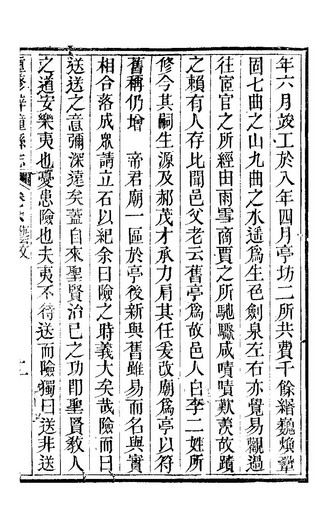 年六月竣工於八年四月亭坊二所共費千餘緡巍煥鞏
固七曲之山九曲之水遥爲生色劍泉左右亦覺易觀過
往宦官之所經田雨雪商賈之所馳驟咸嘖嘖歎羨故蹟
之賴有人存比聞邑父老云舊亭爲故邑人白李二姓所
修今其嗣生源及郝茂才承力肩其任爰改廟爲亭以符
舊稱仍增 帝君廟一區於亭後新與舊雖易而名與實
相合落成眾請立石以紀余曰險之時義大矣哉險而曰
送送之意彌深遠矣蓋自來聖賢治已之功即聖賢教人
之道安樂夷也憂患險也夫夷不待送而險獨曰送非送
重修梓潼縣志 卷之